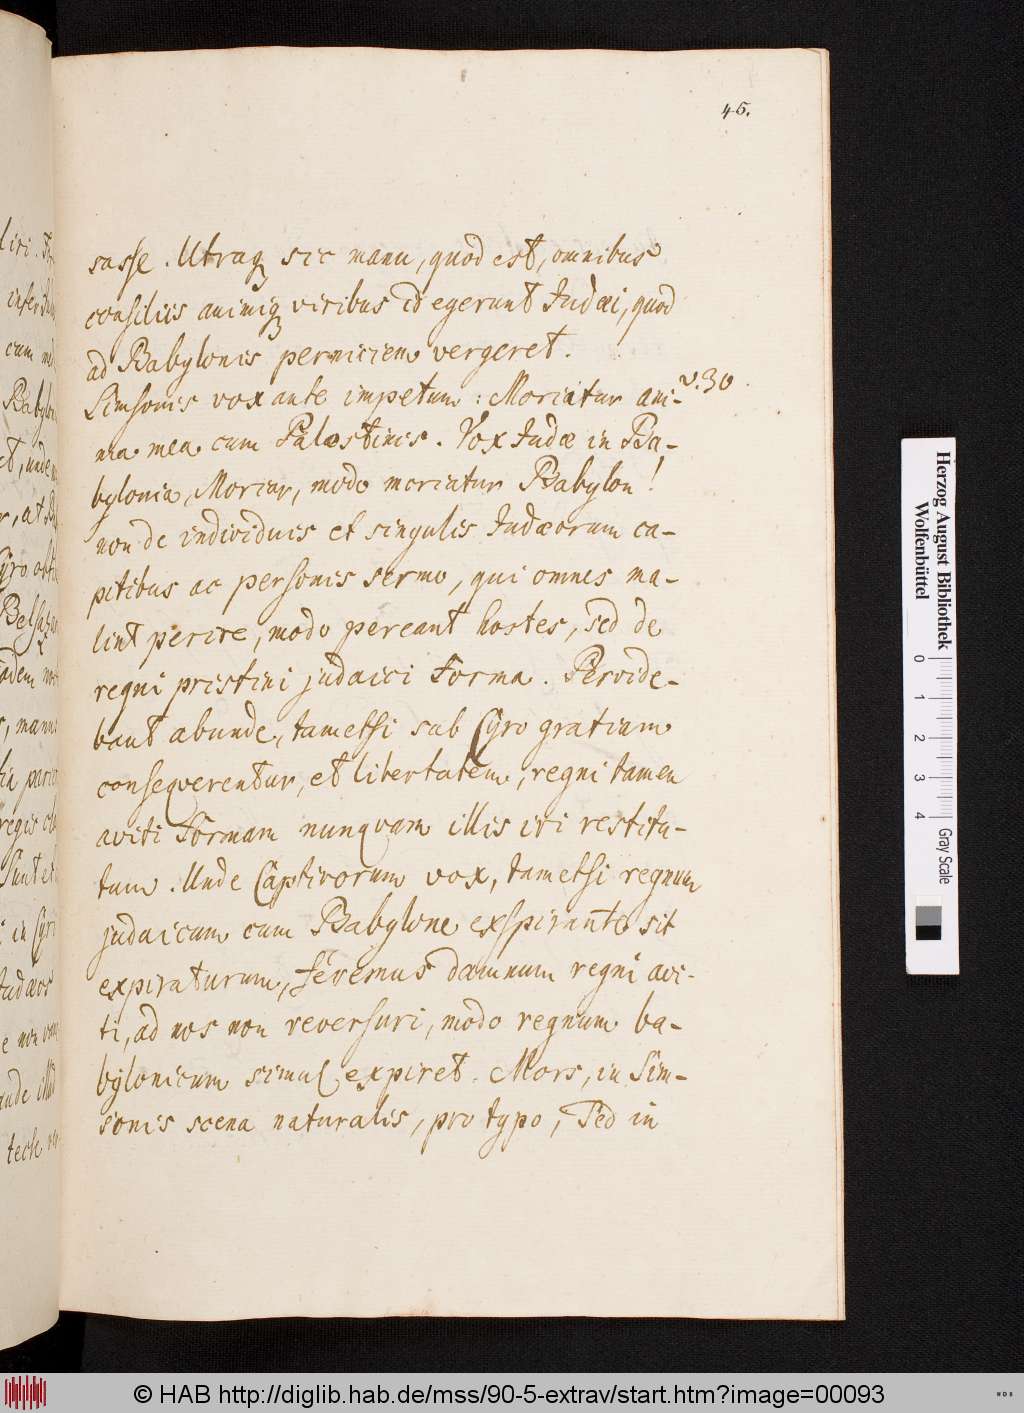 45.
sasse. Utraq3 sic manu, quod est, omnibus
consiliis animiq3 viribus id egerunt Judæi, quod
ad Babylonis perniciem vergeret.
Simsonis vox ante impetum: Moriatur ani- v. 30
ma mea cum Palæstinis. Vox Judæ in Ba-
bylonia, Moriar, modo moriatur Babylon!
non de individuis et singulis Judæorum ca-
pitibus ac personis sermo, qui omnes ma-
lint perire, modo pereant hostes, sed de
regni pristini judaici Forma. Prvide-
bant abunde, tametsi sub Cyro gratiam
conseqverentur, et libertatem, regni tamen
aviti Formam nunqvam illis iri restitu-
tum. Unde Captivorum vox, tametsi regnum
judaicum cum Babylone exspirante sit
expiraturum, feremus damnum regni avi-
ti, ad nos non reversuri, modo regnum ba-
bylonicum simul expiret. Mors, in Sim-
sonis scena naturalis, pro typo, Sed in
Herzog August Bibliothek
Wolfenbüttel
0 1 2 3 4
Gray Scale
© HAB http://diglib.hab.de/mss/90-5-extrav/start.htm?image=00093